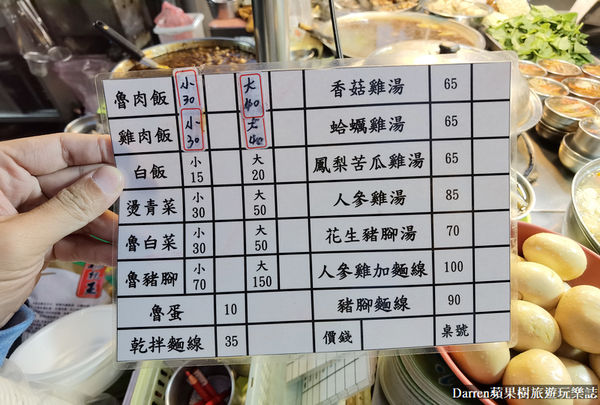 魯肉飯 小30 大40 香菇雞湯 65
雞肉飯 小30 大40 蛤蠣雞湯 65
白飯 小15 大20 鳳梨苦瓜雞湯 65
燙青菜 小30 大50 人參雞湯 85
魯白菜 小30 大50 花生豬腳湯 70
魯豬腳 小70 大150 人參雞加麵線 100
魯蛋 10 豬腳麵線 90
乾拌麵線 35 價錢 桌號
Darren蘋果樹旅遊玩樂誌